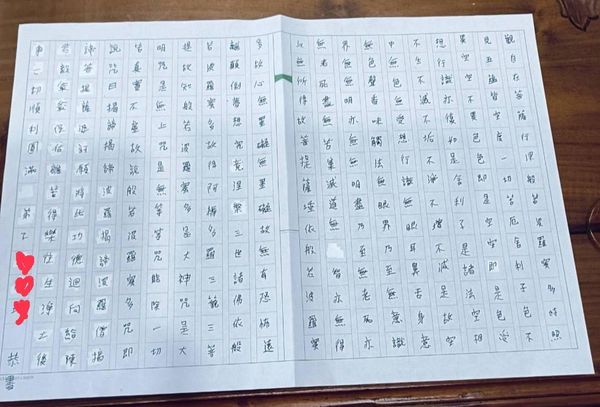 觀自在菩薩行深般若波羅蜜多時照
見五蘊皆空度一切苦厄舍利子色不
異空空不異色色即是空空即是色受
想行識亦復如是舍利子是諸法空相
不生不滅不垢不淨不增不減是故空
中無色無受想行識無眼耳鼻舌身意
無色聲香味觸法無眼界乃至無意識
界無無明亦無無明盡乃至無老死亦
無老死盡無苦集滅道無智亦無得
以無所得故菩提薩埵依般若波羅蜜
多故心無罣礙無罣礙故無有恐怖遠
離顛倒夢想究竟涅槃三世諸佛依般
若波羅蜜多故得阿耨多羅三藐三菩
提故知般若波羅蜜多是大神咒是大
明咒是無上咒是無等等咒能除一切
苦真實不虛故說般若波羅蜜多咒即
說咒曰揭諦揭諦波羅揭諦波羅僧揭
諦菩提薩婆訶願將此功德迴向給陳
君家離苦得樂往生淨土後
事一切順利圓滿弟子恭書